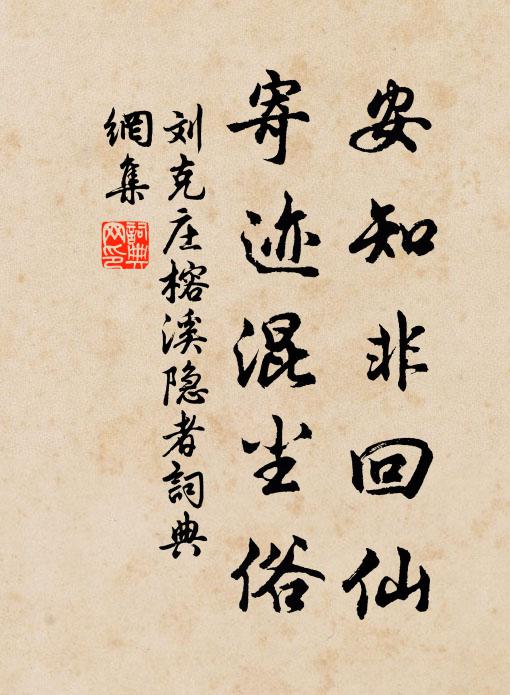 安知非回仙
寄迹混尘俗
刘克庄榕溪隐者詞典
網集
詞典
网印